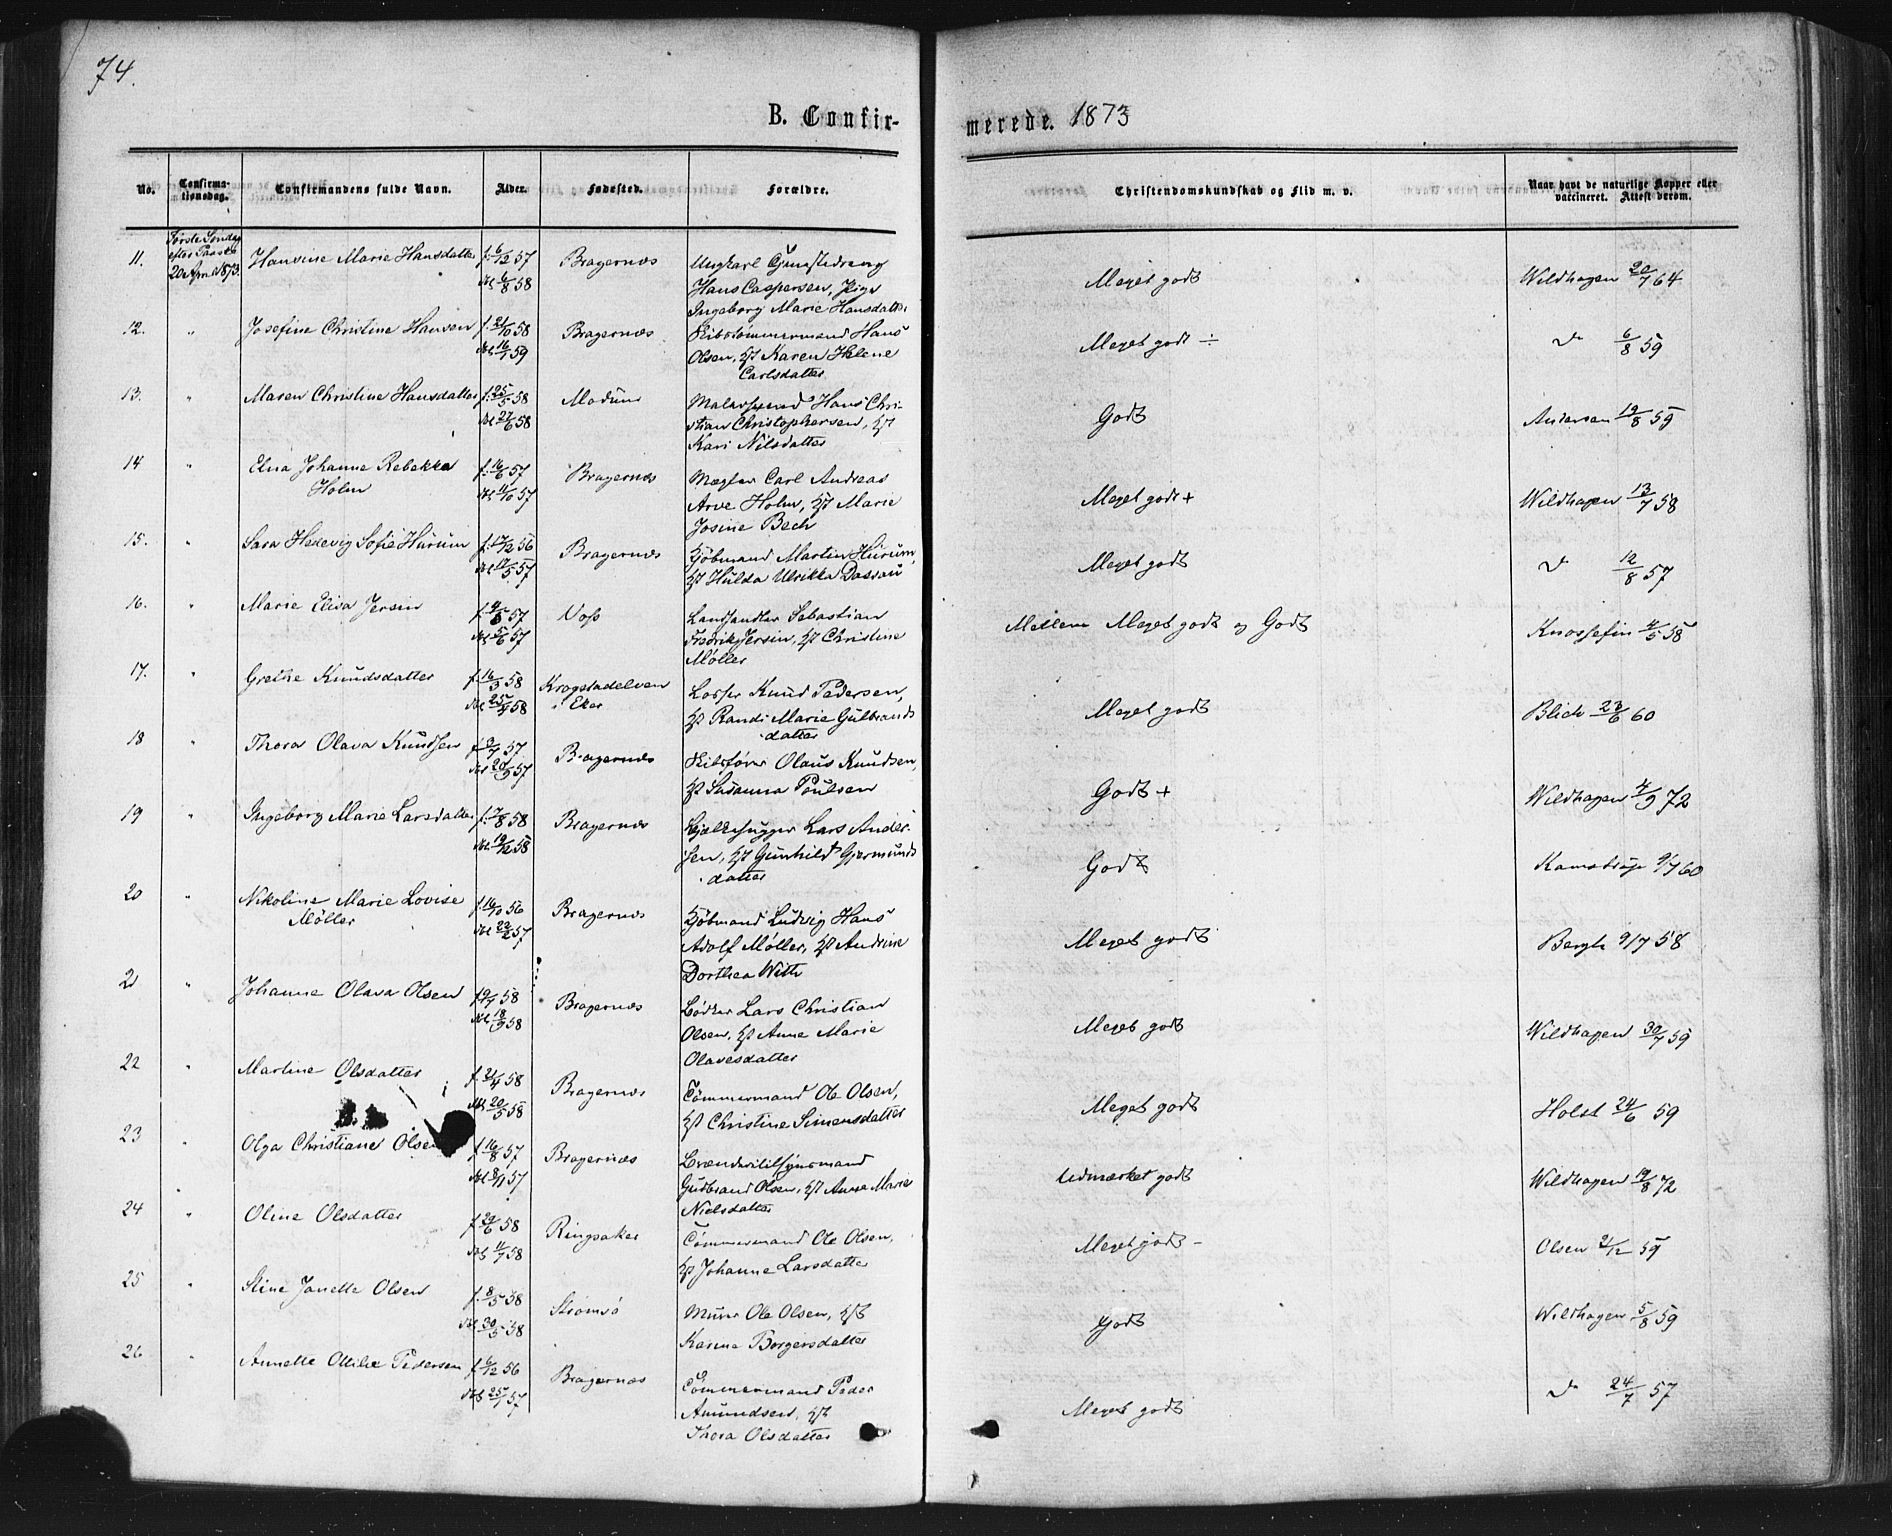 74.
B. Confir-
merede. 1873
No.
Confirma-
tionsdag.
Confirmandens fulde Navn.
Alder.
Fødested.
Forældre.
Christendomskundskab og Flid m. v.
Naar havt de naturlige Kopper eller
vaccineret. Attest derom.
Første Søndag
efter Paaske
20 April 1873.
11. Hansine Marie Hansdatter f. 6/12 57 Bragernæs Ungkarl
6/8 58 Hans Caspersen, Pige
Ingeborg Marie Hansdatter
Meget godt Wildhagen 20/7 64
12. " Josefine Christine Hansen f. 21/10 58 Bragernæs Skibstømmermand Hans
16/1 59 Olsen, Karen Helene
Carlsdatter
Meget godt ÷ Do 6/8 59
13. " Maren Christine Hansdatter f. 25/5 58 Modum Hans Chri-
27/6 58 stian Christophersen,
Kari Nilsdatter
Godt Andersen 19/8 59
14 " Elna Johanne Rebekka f. 16/6 57 Bragernæs Mægler Carl Andreas
Holm 11/10 57 Arve Holm, Marie
Josine Bech
Meget godt + Wildhagen 13/7 58
15. " Sara Hedevig Sofie Hurum f. 17/12 56 Bragernæs Kjøbmand Martin Hurum,
17/5 57 Hulda Ulrikka Dassau
Meget godt Do 12/8 57
16. " Marie Elisa Jersin 57 Voss Landhandler Sebastian
5/6 57 Fredrik Jersin, Christine
Møller
Mellem Meget godt og Godt 4/5 58
17. " Grethe Knudsdatter f. 16/3 58 Krogstadelven Losser Knud Pedersen,
25/4 58 i Eker Randi Marie Gulbrands
datter
Meget godt Blich 23/6 60
18 " Thora Olava Knudsen f. 3/7 57 Bragernæs Skibsfører Olaus Knudsen,
20/9 57 Susanna Poulsen
Godt + Wildhagen 4/9 72
19 " Ingeborg Marie Larsdatter f. 7/8 58 Bragernæs Bjælkehugger Lars Ander-
19/12 58 sen, Gunhild Gjermunds
datter
Godt Kamstrup 9/7 60
20 " Nikoline Marie Lovise f. 16/10 56 Bragernæs Kjøbmand Ludvig Hans
Møller 22/2 57 Adolf Møller, Andrine
Dorthea With
Meget godt Bergh 9/7 58
21 " Johanne Olava Olsen f 9/7 58 Bragernæs Bødker Lars Christian
18/9 58 Olsen, Anne Marie
Olavesdatter
Meget godt Wildhagen 30/7 59
22 " Martine Olsdatter f. 21/4 58 Bragernæs Tømmermand Ole Olsen,
20/5 58 Christine Simensdatter
Meget godt Holst 24/6 59
23 " Olga Christiane Olsen f. 16/8 57 Bragernæs Brændevitilsynsmand
8/11 57 Gudbrand Olsen, Anna Marie
Nielsdatter
Udmærket godt Wildhagen 19/8 72
24 " Oline Olsdatter f. 29/6 58 Ringsaker Tømmermand Ole Olsen,
11/7 58 Johanne Larsdatter
Meget godt - Olsen 2/12 59
25 " Stine Janette Olsen f. 8/5 58 Strømsø Murer Ole Olsen,
30/5 58 Karina Borgersdatter
Godt Wildhagen 5/8 59
26 " Annette Ottilie Pedersen f. 6/12 56 Bragernæs Tømmermand Peder
25/1 57 Amundsen,
Thora Olsdatter
Meget godt Do 24/7 57